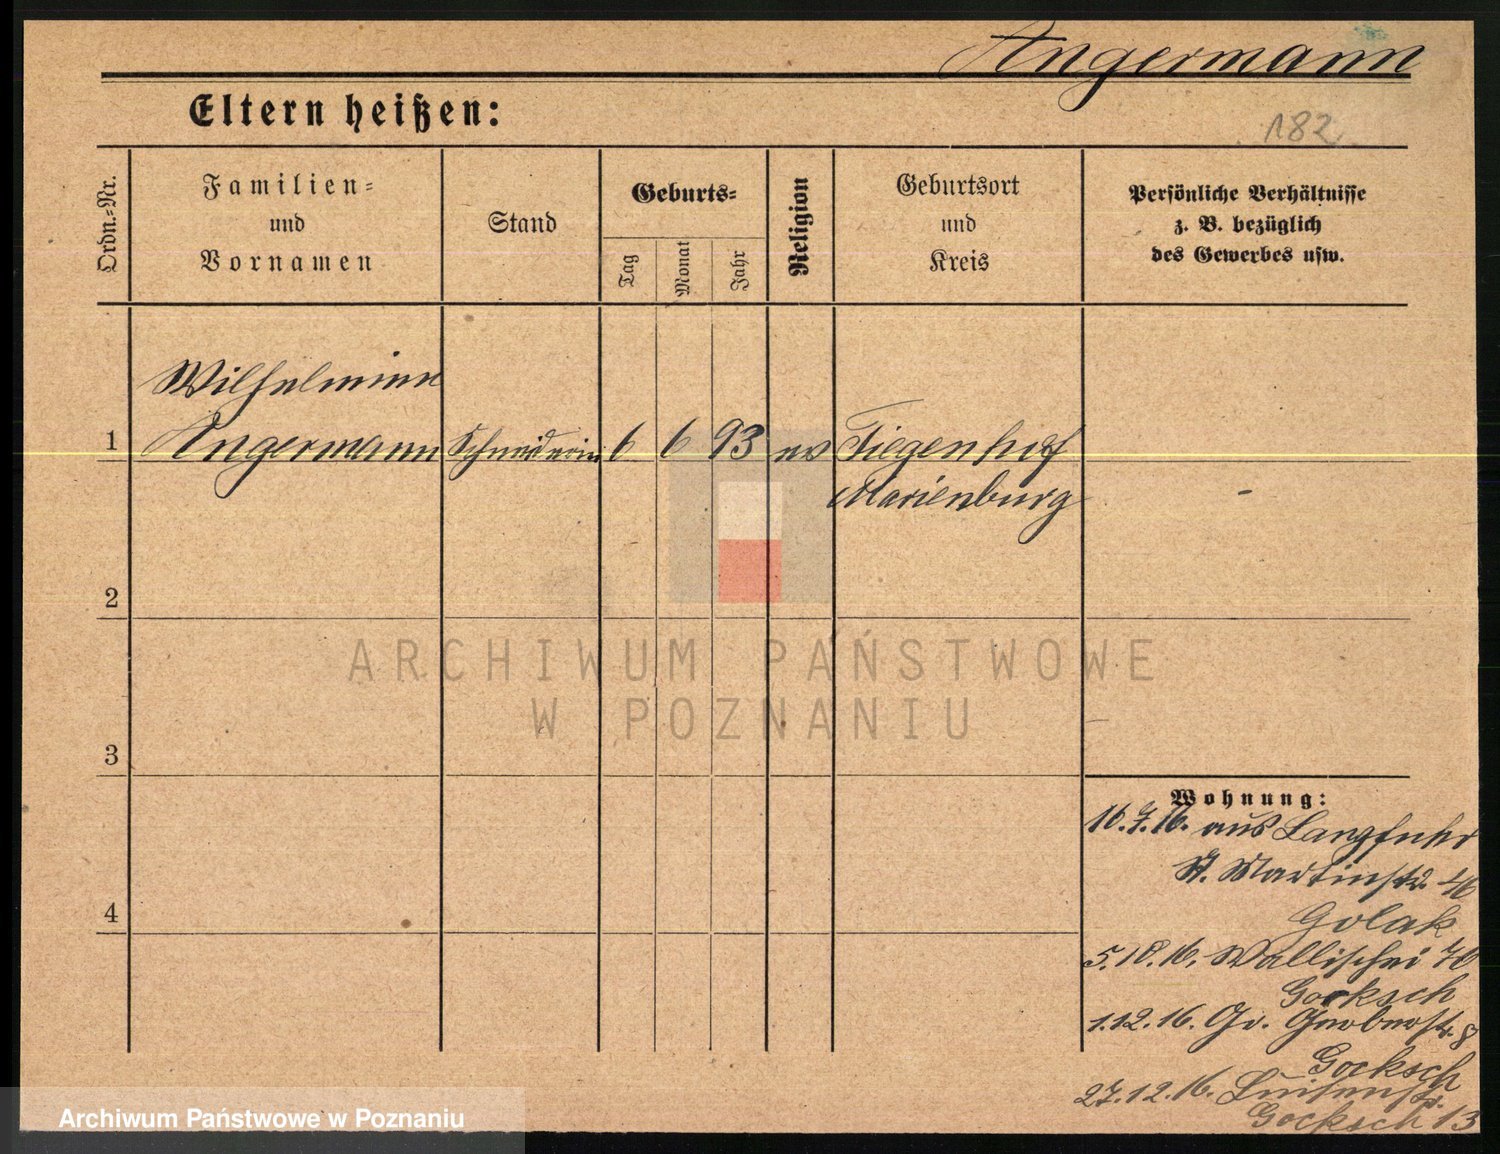 Angermann
Eltern heißen:
182
Ordn.-Nr.
Familien-
und
Vornamen
Stand
Geburts-
Tag
Monat
Jahr
Religion
Geburtsort
und
Kreis
Persönliche Verhältnisse
z. B. bezüglich
des Gewerbes usw.
Wilhelmine
1 Angermann Schneiderin 6 6 93 ev Tiegenhof
Marienburg
-
2
ARCHIWUM PAŃSTWOWE
W POZNANIU
3
Wohnung:
16.7.16. aus Langfuhr
St. Martinstr. 46
Golak
4
5.10.16. Wallischei 76
Gocksch
1.12.16. Gr. Gerberstr. 8
Gocksch
27.12.16. Luisenstr.
Gocksch 13
Archiwum Państwowe w Poznaniu